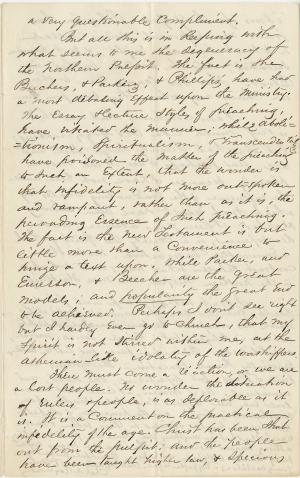 a very questionable compliment.
But all this is in keeping with
what seems to me the degeneracy of
the Northern Pulpit. The fact is the
Beechers, & Parkers, & Phillips, have had
a most debasing effect upon the Ministry.
The Essay & Lecture Styles of preaching,
have vitiated the manner, while Aboli=
=tionism, Spiritualism, & Transcendentalism
have poisoned the matter of the preaching
to such an extent, that the wonder is
that infidelity is not more out-spoken
and rampant, rather than as it is, the
pervading essence of such preaching.
The fact is the New Testament is but
little more than a convenience to
hinge a text upon. While Parker, and
Emerson, & Beecher are the great
models, and popularity the great End
to be achieved. Perhaps I don't see right
but I hardly ever go to Church, that my
Spirit is not stirred within me, at the
Athenian like idolatry of the worshippers.
There must come a reaction, or we are
a lost people. No wonder the
of rulers, & people, is as deplorable as it
is. It is a Comment on the practical
infidelity of the age. Christ has been shut
out from the pulpit, and the people
have been taught higher law, & specious